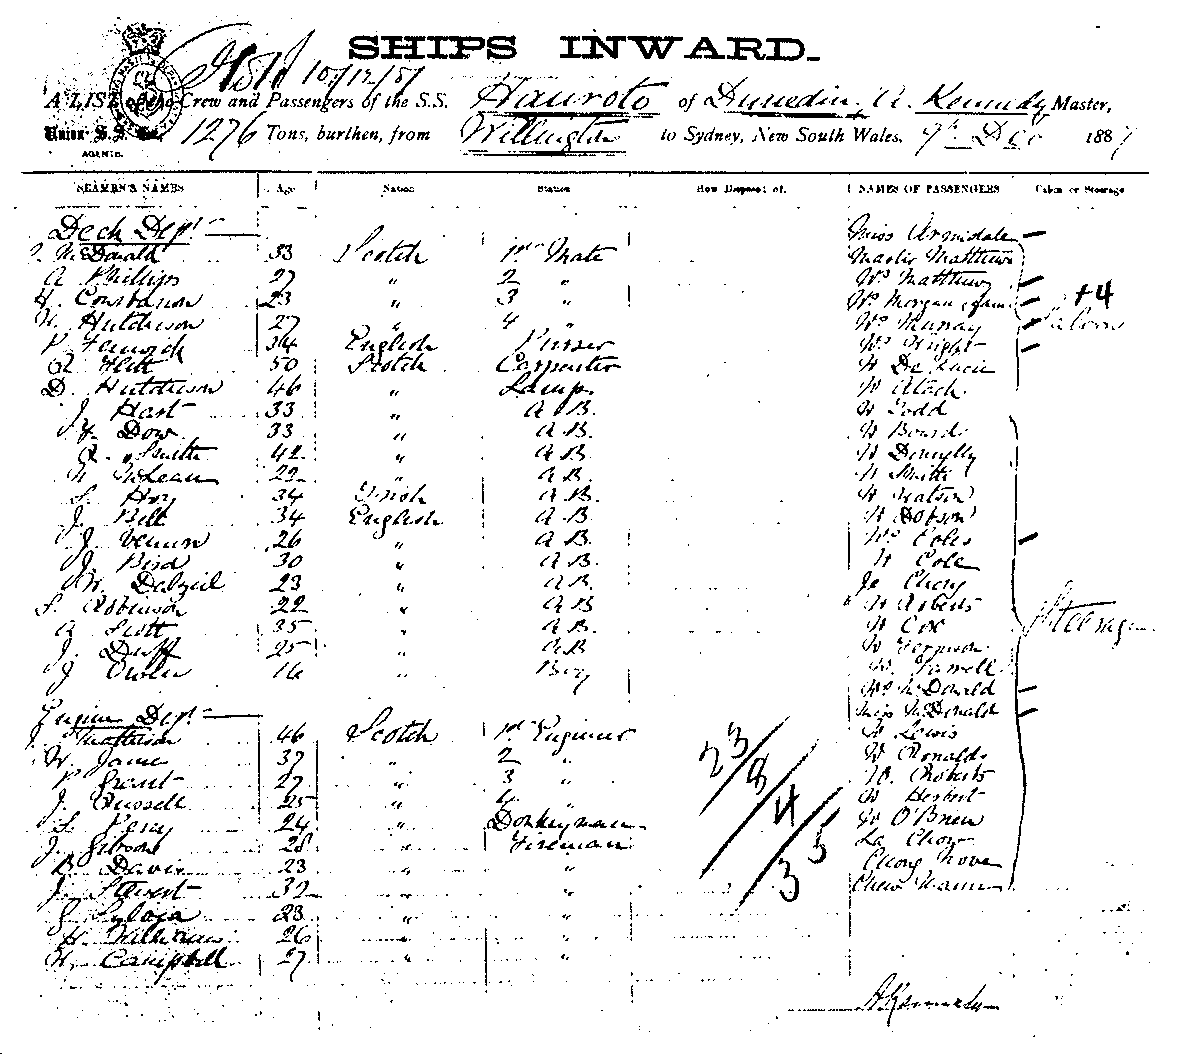 SHIPS INWARD.
10/12/87
A LIST of the Crew and Passengers of the S.S. Hauroto of Dunedin, A. Kennedy Master,
Union S.S. Co. 1276 Tons, burthen, from Wellington to Sydney, New South Wales, 9th Dec 1887
AGENTS.
SEAMEN'S NAMES Age Nation Station How Disposed of. NAMES OF PASSENGERS Cabin or Steerage
Deck Dept Miss Armidale
McDonald 33 Scotch 1st Mate Master Matthews
A Phillips 27 " 2 " Mrs Matthews
H. Constanson 23 " 3 " Mrs Morgan +4
Hutchison 27 " 4 " Mrs Murray Saloon
P Fenwick 34 English Purser Mrs Wright
50 Scotch Carpenter Mr De Lacie
D. Hutchison 46 " Lamps Mr Atack
J. Hart 33 " A.B. Mr Todd
J. Dow 33 " A.B. Mr
Smith 42 " A.B. Mr Donnelly
McLean 22 " A.B. Mr Smith
S. Hoy 34 Irish A.B. Mr Watson
J. Bell 34 English A.B. Mr Dobson
J. Vernon 26 " A.B. Mrs Coles
J. Bird 30 " A.B. Mr Cole
W. Dalziel 23 " A.B. Chong
S. Robinson 22 " A.B. Mr Roberts
A Scott 35 " A.B. Mr Cox Steerage
J. Duff 25 " A.B. Mr Ferguson
J Owen 16 " Boy Mr Farrell
Mrs McDonald
Engine Dept Miss McDonald
Matheson 46 Scotch 1st Engineer Mr Lewis
W. Jamie 37 " 2 " Mr Ronalds
P. Grant 27 " 3 " Roberts
J. Russell 25 " 4 " Mr Herbert
S. Percy 24 " Donkeyman Mr O'Brien
J. Gibson 28 " Fireman La Chow
Davie 23 " " Chong
J. Stewart 32 " " Chew
23 " "
H. Williams 26 " "
W. Campbell 27 " "
23/8/4/5/3
A Kennedy